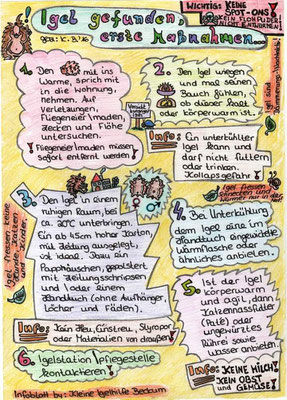 Igel gefunden,
erste Maßnahmen...
WICHTIG: KEINE
SPOT-ONS!
KEIN FLOHPUDER
VERWENDEN!
1. Den mit ins
Warme, sprich mit
in die Wohnung,
nehmen. Auf
Verletzungen,
Fliegeneier/maden,
Zecken und Flöhe
untersuchen.
! Fliegeneier/maden müssen
sofort entfernt werden!
2. Den Igel wiegen
und mal seinen
Bauch fühlen,
ob dieser kalt
oder körperwarm ist.
Info: Ein unterkühlter
Igel kann und
darf nicht futtern
oder trinken.
Kollapsgefahr!
3. Den Igel in einem
ruhigen Raum, bei
ca. 20°C unterbringen.
Ein ab 45cm hoher Karton,
mit Zeitung ausgelegt,
ist ideal. Dazu ein
Papphäuschen, gepolstert
mit Zeitungsschnipsen
und / oder einem
Handtuch (ohne Aufhänger,
Löcher und Fäden).
Igel fressen keine
4. Bei Unterkühlung
dem Igel eine in
Handtuch eingewickelte
Wärmflasche oder
ähnliches anbieten.
5. Ist der Igel
körperwarm
und agil, dann
Katzennassfutter
(Paté) oder
ungewürztes
Rührei sowie
Wasser anbieten.
Info: Kein Heu, Einstreu, Styropor
oder Materialien von draußen!
6. Igelstation / Pflegestelle
kontaktieren!
Info: KEINE MILCH!
KEIN OBST
und GEMÜSE!
Infoblatt by: Kleine Igelhilfe Beckum